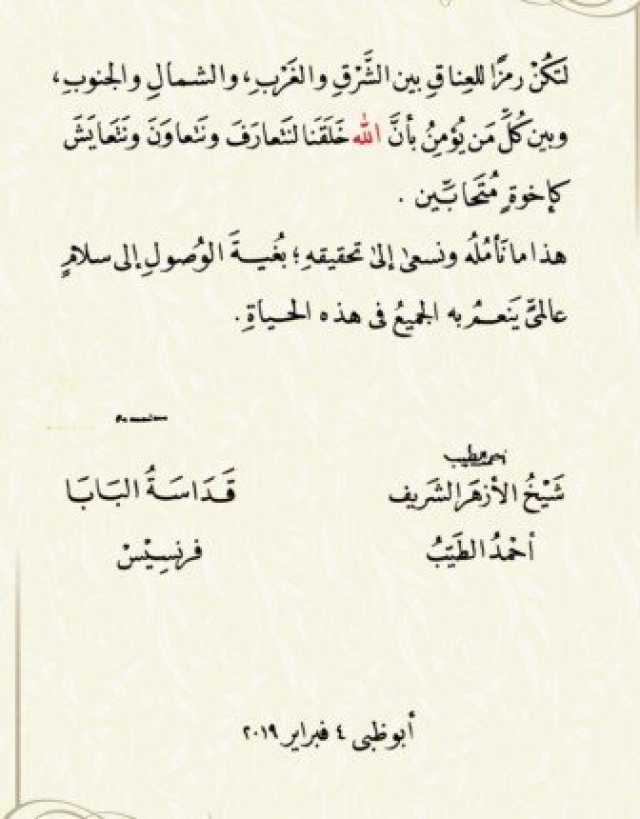 لتَكُنْ رمزًا للعِناقِ بين الشَّرْقِ والغَرْبِ، والشمالِ والجنوبِ،
وبين كُلِّ مَن يُؤمِنُ بأنَّ الله خَلَقَنا لنَتَعارَفَ ونَتَعاوَنَ ونَتَعايَشَ
كإخوةٍ مُتَحابِّين .
هذا ما نَأمُلُه ونسعى إلى تحقيقهِ ؛ بُغيـةَ الوُصولِ إلى سلامٍ
عالميٍّ يَنعـمُ به الجميعُ في هذه الحيـاةِ .
شَيْخُ الأزهَرِ الشَريف
قَدَاسَةُ البَابَا
أحْمَدُ الطَيِّبُ
فرنسِيْسْ
أبوظبي ٤ فبراير ٢٠١٩